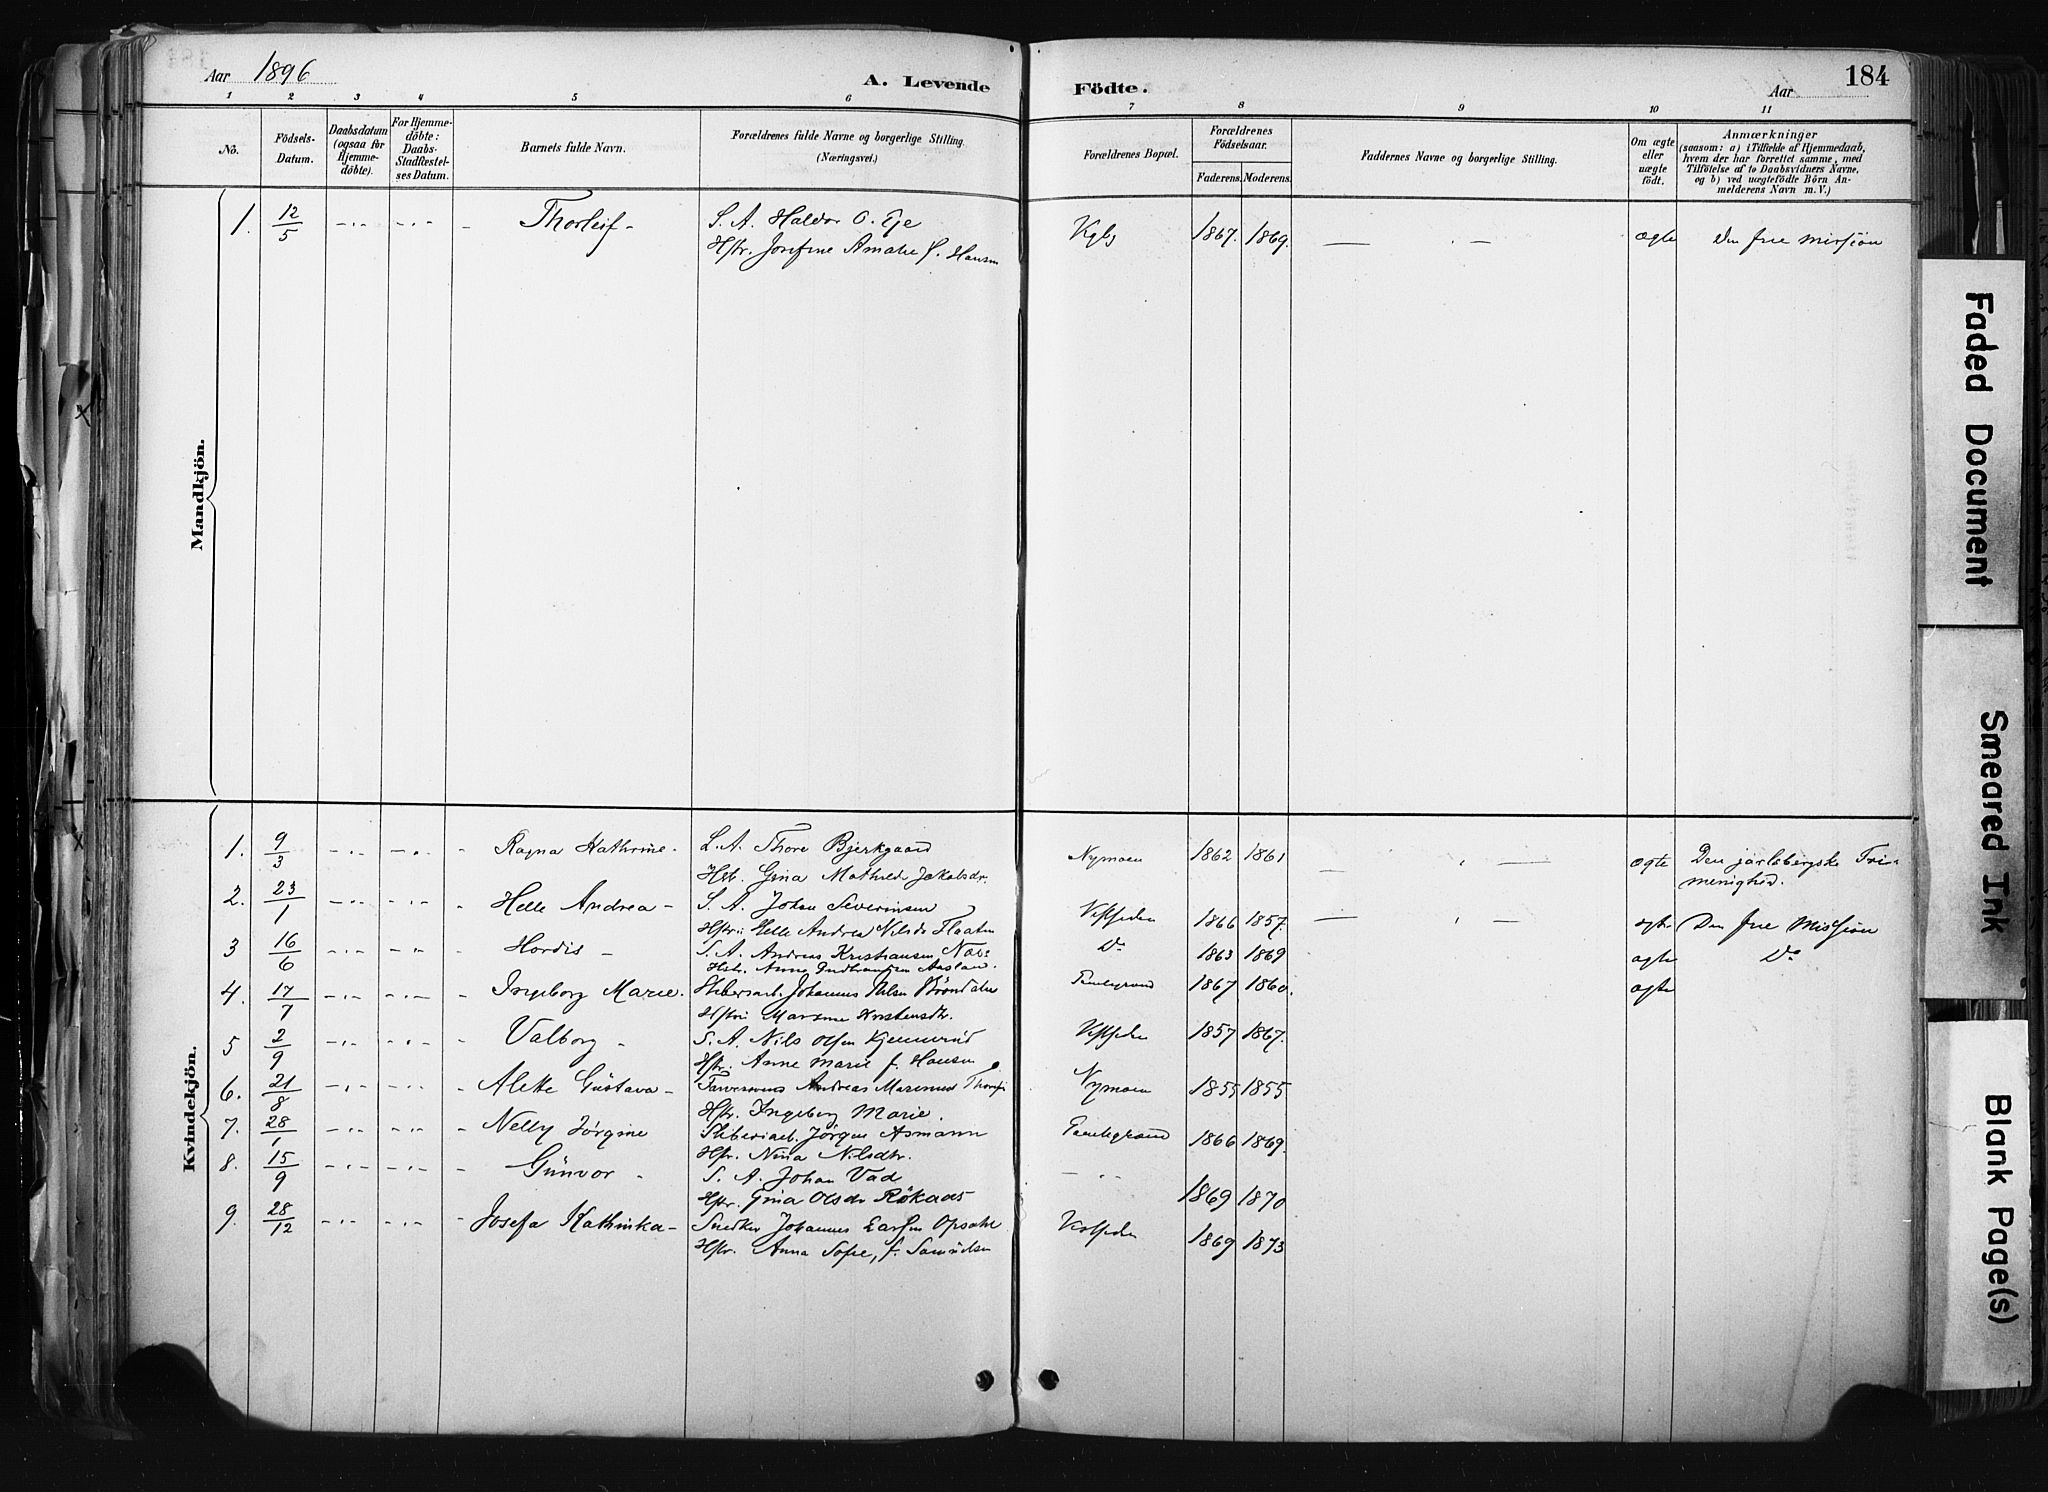 Aar 1896
A. Levende
Födte.
Aar
184
1 2 3 4 5 6 7 8 9 10 11
No.
Födsels-
Datum.
Daabsdatum
(ogsaa for
Hjemme-
döbte).
For Hjemme-
döbte:
Daabs-
Stadfæstel-
ses Datum.
Barnets fulde Navn.
Forældrenes fulde Navne og borgerlige Stilling.
(Næringsvei.)
Forældrenes Bopæl.
Forældrenes
Födselsaar.
Faderens. Moderens.
Faddernes Navne og borgerlige Stilling.
Om ægte
eller
uægte
födt.
Anmærkninger
(saasom: a) i Tilfælde af Hjemmedaab,
hvem der har forrettet samme, med
Tilföielse af to Daabsvidners Navne,
og b) ved uægtefödte Börn An-
melderens Navn m. V.)
Mandkjön.
1. 12/5 Thorleif S. A. Haldor O. Eje Kgbg 1867. 1869. ægte Den frie Missjon
Hstr. Josefine Amalie f. Hansen
Kvindekjön.
1. 9/3 Ragna Kathrine L. A. Thore Bjerkgaard Nymoen 1862 1861 ægte Den jarlsbergske Fri-
Hstr. Gina Mathilde Jakobsdr. menighed.
2. 23/1 Helle Andrea S. A. Johan Severinsen Vestsiden 1866 1857. ægte Den frie Missjon
Hstr. Helle Andrea Nilsdr Flaaten
3 16/6 Hordis S. A. Andreas Kristiansen Do 1863 1869 ægte Do
Hstr. Anne
4. 17/7 Ingeborg Marie. Johannes Nilsen Bröndalen 1867 1860. ægte
Hstr. Maren Kristensdtr.
5 2/9 Valborg S. A. Nils Olsen Vestsiden 1857 1867.
Hstr. Anne Marie f. Hansen
6. 21/8 Alette Gustava Andreas Marinius Nymoen 1855 1855
Hstr. Ingeborg Marie.
7. 28/1 Nelly Jörgine Sliberiarb. Jörgen Asmann 1866 1869.
Hstr. Nina Nilsdtr.
8. 15/9 Gunvor S. A. Johan Vad 1869 1870
Hstr. Gina Olsdr Rökaas
9. 28/12 Josefa Kathinka Snedker Johannes Larsen Opsahl Vestsiden 1869 1873
Hstr. Anna Sofie, f. Samuelsen
Faded Document
Smeared Ink
Blank Page(s)